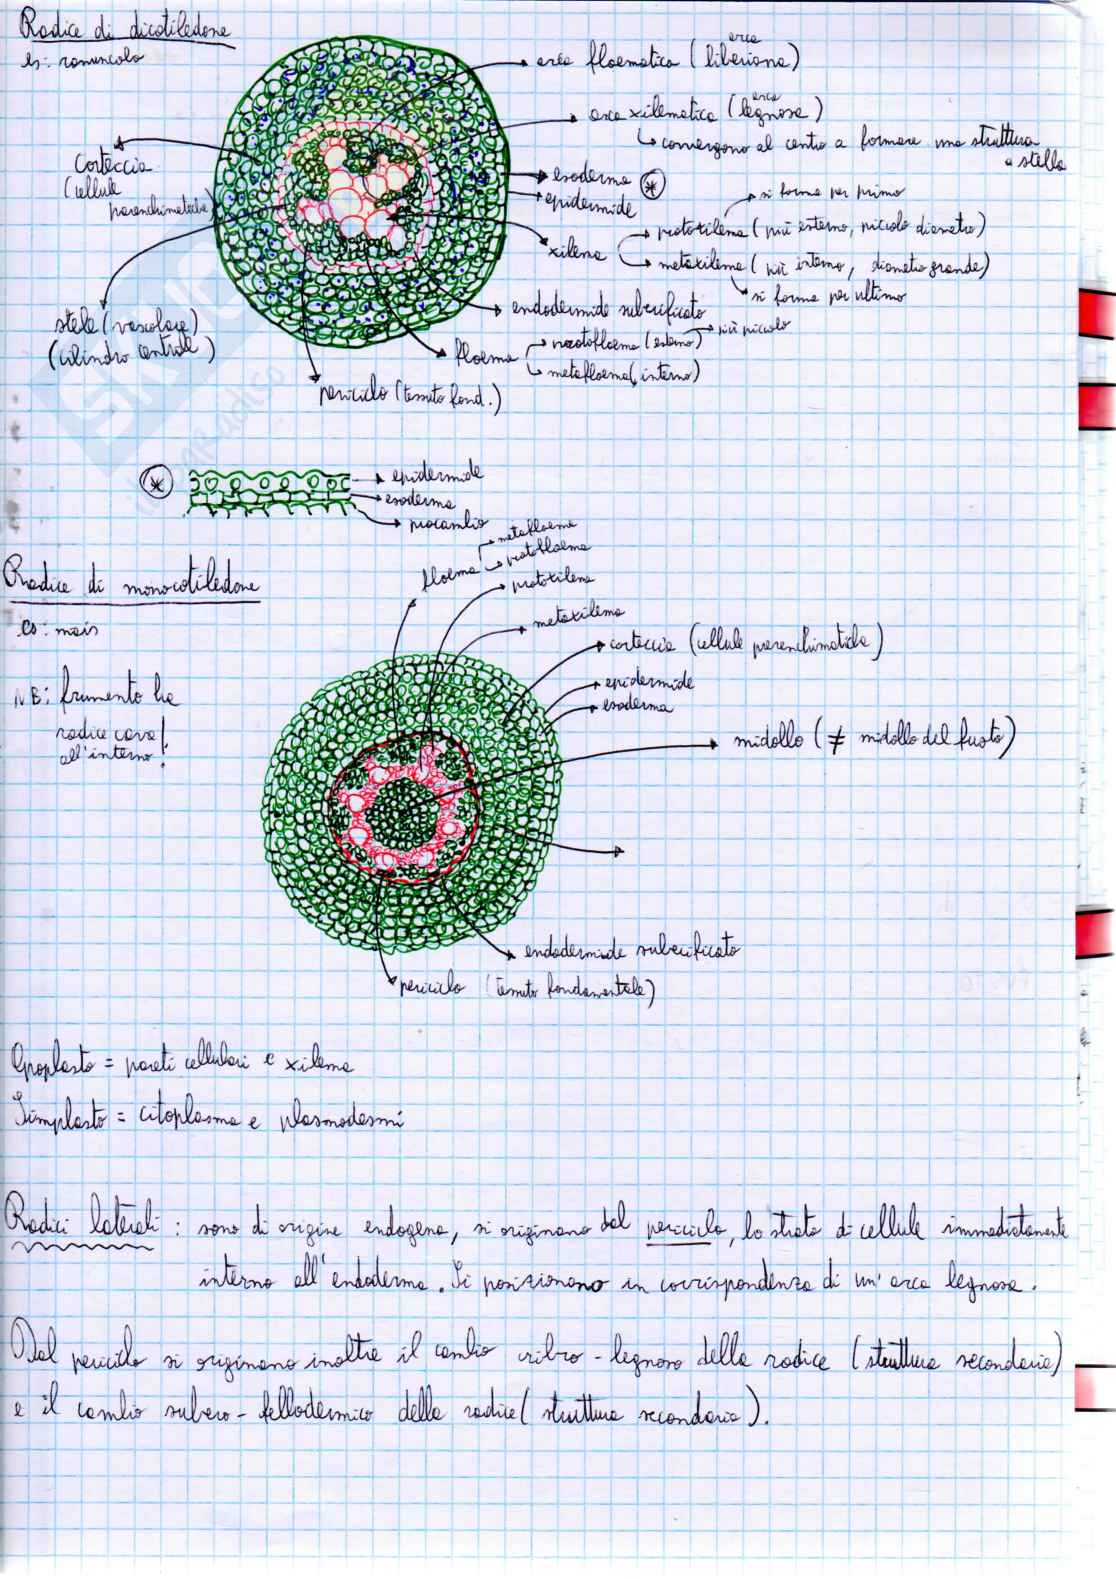 Radice di dicotiledone
es: ranuncolo
area floematica (arca liberiana)
area xilematica (arca legnosa)
convergono al centro a formare una struttura
a stella
Corteccia
(cellule
parenchimatiche)
esoderma *
epidermide
xilema
si forma per primo
protoxilema (più esterno, piccolo diametro)
metaxilema (più interno, diametro grande)
si forma per ultimo
stele (vascolare)
(cilindro centrale)
endodermide suberificato
floema
protofloema (esterno) più piccolo
metafloema (interno)
periciclo (tessuto fond.)
*
epidermide
esoderma
procambio
Radice di monocotiledone
es: mais
floema
metafloema
protofloema
protoxilema
metaxilema
corteccia (cellule parenchimatiche)
epidermide
esoderma
NB: frumento ha
radice cava
all'interno!
midollo (≠ midollo del fusto)
endodermide suberificato
periciclo (tessuto fondamentale)
Apoplasto = pareti cellulari e xilema
Simplasto = citoplasma e plasmodesmi
Radici laterali: sono di origine endogena, si originano dal periciclo, lo strato di cellule immediatamente
interno all'endoderma. Si posizionano in corrispondenza di un'arca legnosa.
Dal periciclo si originano inoltre il cambio cribro-legnoso della radice (struttura secondaria)
e il cambio subero-fellodermico della radice (struttura secondaria).